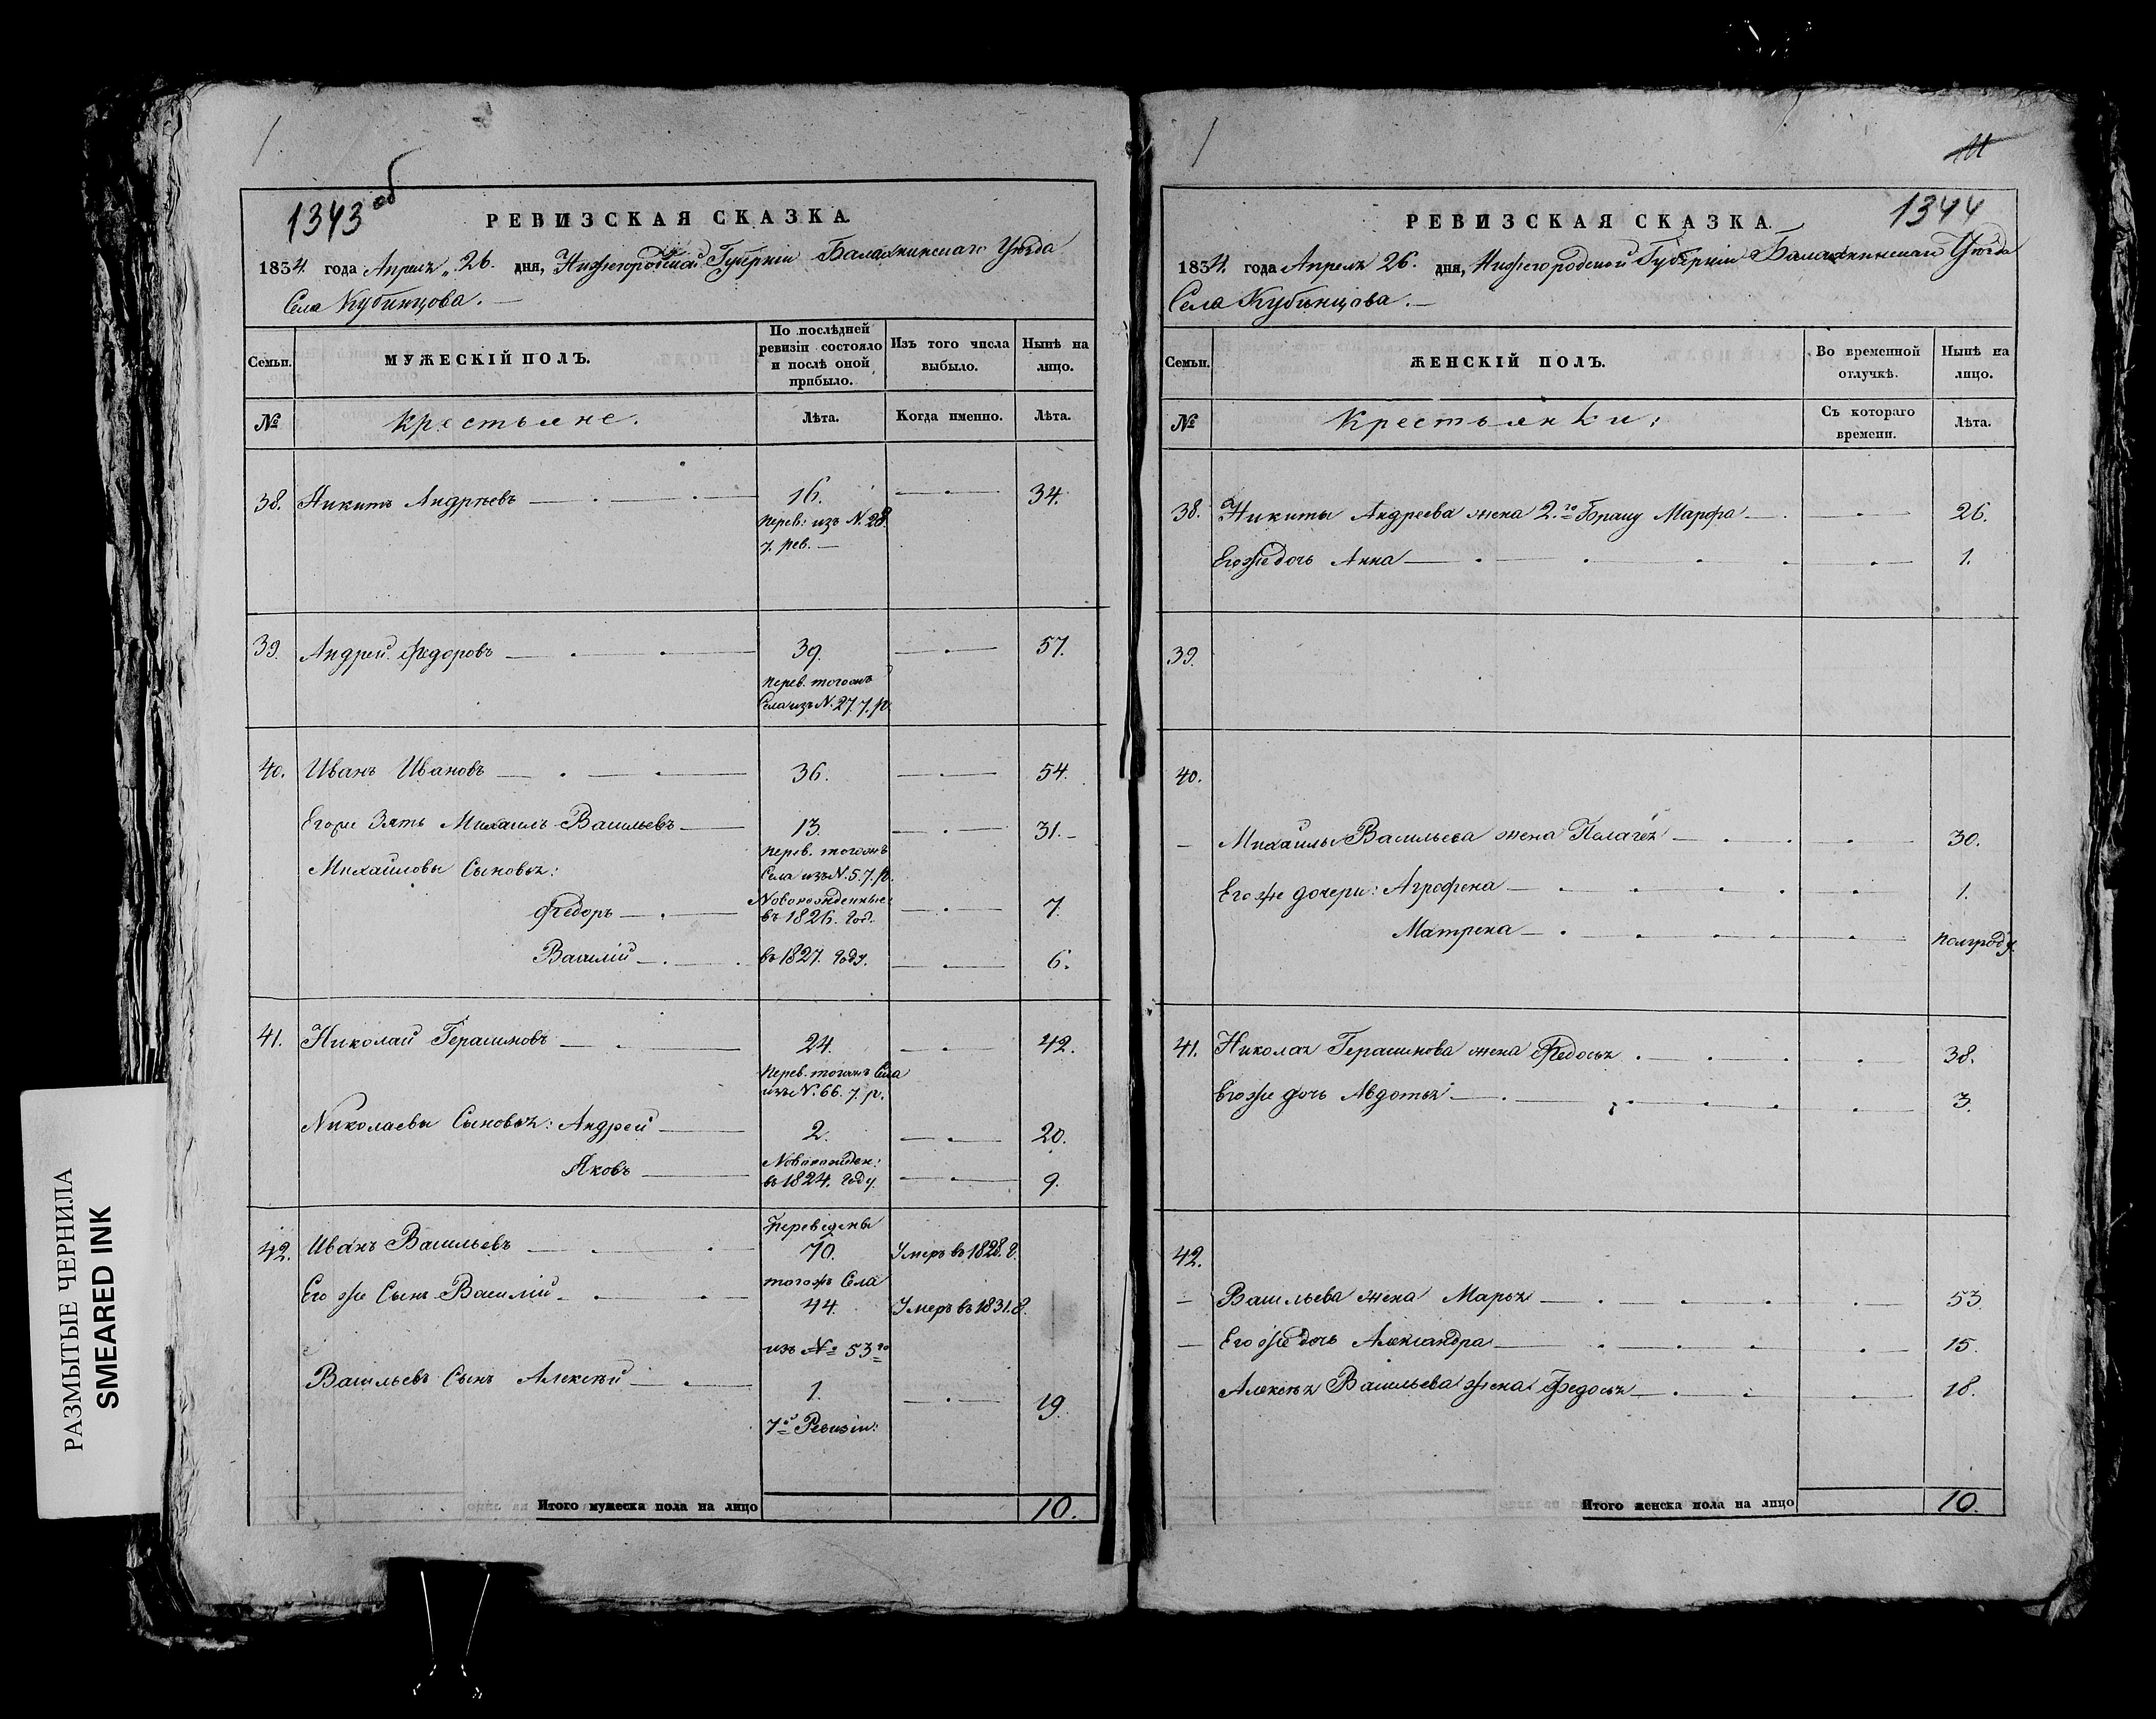 1343об
РЕВИЗСКАЯ СКАЗКА.
1834. года Апреля „26. дня, Нижегородской Губерніи Балахнинскаго Уѣзда
Села Кубинцова.
Семьи.
МУЖЕСКІЙ ПОЛЪ.
По послѣдней ревизіи состояло и послѣ оной прибыло.
Изъ того числа выбыло.
Нынѣ на лицо.
№
Крестьяне.
Лѣта.
Когда именно.
Лѣта.
38. Никита Андрѣевъ 16. 34.
перев: изъ N. 28.
7. рев.
39. Андрей Федоровъ 39. 57.
перев. тогожъ
Села изъ N. 27. 7. р.
40. Иванъ Ивановъ 36. 54.
Егоже Зять Михаилъ Васильевъ 13. 31.
перев. тогожъ
Михайловы Сыновья:
Села изъ N. 5. 7. р.
Новорожденные:
Федоръ въ 1826. год. 7.
Василій въ 1827. году. 6.
41. Николай Герасимовъ 24. 42.
перев. тогожъ Села
изъ N. 66. 7. р.
Николаевы Сыновья: Андрей 2. 20.
Новорожден:
Яковъ въ 1824. году. 9.
Переведены
42. Иванъ Васильевъ 70. Умеръ въ 1828. г.
тогожъ Села
Его же Сынъ Василій 44. Умеръ въ 1831. г.
изъ № 53го
Васильевъ Сынъ Алексѣй 1. 19.
7й Ревизіи:
Итого мужеска пола на лицо 10.
11
1344
РЕВИЗСКАЯ СКАЗКА.
1834. года Апреля 26. дня, Нижегородской Губерніи Балахнинскаго Уѣзда
Села Кубинцова.
Семьи.
ЖЕНСКІЙ ПОЛЪ.
Во временной отлучкѣ.
Нынѣ на лицо.
№
Крестьянки:
Съ котораго времени.
Лѣта.
38. Никиты Андреева жена 2.го Браку Марфа 26.
Егоже дочь Анна 1.
39.
40.
Михайлы Васильева жена Палагѣя 30.
Егоже дочери: Агрофена 1.
Матрена полгоду.
41. Николая Герасимова жена Федосья 38.
Егоже дочь Авдотья 3.
42.
Васильева жена Марья 53
Егоже дочь Александра 15.
Алексѣя Васильева жена Федосья 18.
Итого женска пола на лицо 10.
РАЗМЫТЫЕ ЧЕРНИЛА
SMEARED INK